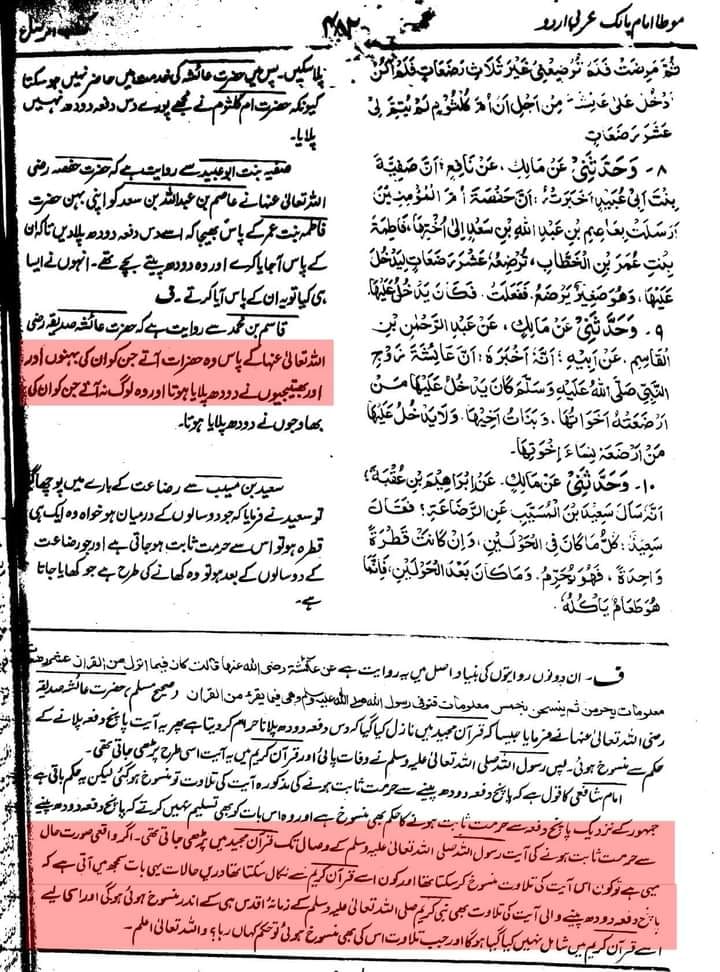 موطا امام مالک عربی اردو
۴۸۲
ثُمَّ مَرِضَتْ فَلَمْ تُرْضِعْنِيْ غَيْرَ ثَلَاثِ رَضَعَاتٍ فَلَمْ أَكُنْ
أَدْخُلُ عَلٰى عَائِشَةَ مِنْ أَجْلِ أَنَّ أُمَّ كُلْثُوْمٍ لَمْ تُتِمَّ لِيْ
عَشْرَ رَضَعَاتٍ
۸۔ وَحَدَّثَنِيْ عَنْ مَالِكٍ، عَنْ نَافِعٍ؛ أَنَّ صَفِيَّةَ
بِنْتَ أَبِيْ عُبَيْدٍ أَخْبَرَتْهُ؛ أَنَّ حَفْصَةَ أُمَّ الْمُؤْمِنِيْنَ
أَرْسَلَتْ بِعَاصِمِ بْنِ عَبْدِ اللهِ بْنِ سَعْدٍ إِلٰى أُخْتِهَا، فَاطِمَةَ
بِنْتِ عُمَرَ بْنِ الْخَطَّابِ، تُرْضِعُهُ عَشْرَ رَضَعَاتٍ لِيَدْخُلَ
عَلَيْهَا، وَهُوَ صَغِيْرٌ يَرْضَعُ، فَفَعَلَتْ. فَكَانَ يَدْخُلُ عَلَيْهَا
۹۔ وَحَدَّثَنِيْ عَنْ مَالِكٍ، عَنْ عَبْدِ الرَّحْمٰنِ بْنِ
الْقَاسِمِ، عَنْ أَبِيْهِ؛ أَنَّهُ أَخْبَرَهُ؛ أَنَّ عَائِشَةَ زَوْجَ
النَّبِيِّ صَلَّى اللهُ عَلَيْهِ وَسَلَّمَ كَانَ يَدْخُلُ عَلَيْهَا مَنْ
أَرْضَعَتْهُ أَخَوَاتُهَا، وَبَنَاتُ أَخِيْهَا. وَلَا يَدْخُلُ عَلَيْهَا
مَنْ أَرْضَعَهُ نِسَاءُ إِخْوَتِهَا۔
۱۰۔ وَحَدَّثَنِيْ عَنْ مَالِكٍ، عَنْ إِبْرَاهِيْمَ بْنِ عُقْبَةَ؛
أَنَّهُ سَأَلَ سَعِيْدَ بْنَ الْمُسَيَّبِ عَنِ الرَّضَاعَةِ؟ فَقَالَ
سَعِيْدٌ: كُلُّ مَا كَانَ فِي الْحَوْلَيْنِ، وَإِنْ كَانَتْ قَطْرَةً
وَاحِدَةً، فَهُوَ يُحَرِّمُ. وَمَا كَانَ بَعْدَ الْحَوْلَيْنِ، فَإِنَّمَا
هُوَ طَعَامٌ يَأْكُلُهُ۔
پلا سکیں۔ پس میں حضرت عائشہ کی خدمت میں حاضر نہیں ہو سکتا
کیونکہ حضرت ام کلثوم نے مجھے پورے دس دفعہ دودھ نہیں
پلایا۔
صفیہ بنت ابو عبید سے روایت ہے کہ حضرت حفصہ رضی
اللہ تعالیٰ عنہا نے عاصم بن عبداللہ بن سعد کو اپنی بہن حضرت
فاطمہ بنت عمر کے پاس بھیجا کہ اسے دس دفعہ دودھ پلا دیں تاکہ ان
کے پاس آ جایا کرے اور وہ دودھ پیتے بچے تھے۔ انہوں نے ایسا
ہی کیا تو یہ ان کے پاس آیا کرتے۔ ف
قاسم بن محمد سے روایت ہے کہ حضرت عائشہ صدیقہ رضی
اللہ تعالیٰ عنہا کے پاس وہ حضرات آتے جن کو ان کی بہنوں اور
اور بھتیجیوں نے دودھ پلایا ہوتا اور وہ لوگ نہ آتے جن کو ان کی
بھاوجوں نے دودھ پلایا ہوتا۔
سعید بن مسیب سے رضاعت کے بارے میں پوچھا گیا
تو سعید نے فرمایا کہ جو دو سالوں کے درمیان ہو خواہ وہ ایک ہی
قطرہ ہو تو اس سے حرمت ثابت ہو جاتی ہے اور جو رضاعت
کے دو سالوں کے بعد ہو تو وہ کھانے کی طرح ہے جو کھایا جاتا
ہے۔
ف۔ ان دونوں روایتوں کی بنیاد و اصل میں یہ روایت ہے عن عائشة رضی الله عنها قالت كان فيما انزل من القران عشر رضعات
معلومات يحرمن ثم ينسخن بخمس معلومات فتوفى رسول الله صلى الله عليه وسلم وهى فيما يقرء من القران۔ (صحیح مسلم) حضرت عائشہ صدیقہ
رضی اللہ تعالیٰ عنہا نے فرمایا جیسا کہ قرآن مجید میں نازل کیا گیا کہ دس دفعہ دودھ پلانا حرام کر دیتا ہے پھر یہ آیت پانچ دفعہ پلانے کے
حکم سے منسوخ ہوئی۔ پس رسول اللہ صلی اللہ تعالیٰ علیہ وسلم نے وفات پائی اور قرآن کریم میں یہ آیت اسی طرح پڑھی جاتی تھی۔
امام شافعی کا قول ہے کہ پانچ دفعہ دودھ پینے سے حرمت ثابت ہونے کی مذکورہ آیت کی تلاوت تو منسوخ ہو گئی لیکن یہ حکم باقی ہے
جمہور کے نزدیک پانچ دفعہ سے حرمت ثابت ہونے کا حکم بھی منسوخ ہے اور وہ اس بات کو بھی تسلیم نہیں کرتے کہ پانچ دفعہ دودھ پینے
سے حرمت ثابت ہونے کی آیت رسول اللہ صلی اللہ تعالیٰ علیہ وسلم کے وصال تک قرآن مجید میں پڑھی جاتی تھی۔ اگر واقعی صورت حال
یہی ہے تو کون اس آیت کی تلاوت منسوخ کر سکتا تھا اور کون اسے قرآن کریم سے نکال سکتا تھا دریں حالات یہی بات سمجھ میں آتی ہے کہ
پانچ دفعہ دودھ پینے والی آیت کی تلاوت بھی نبی کریم صلی اللہ تعالیٰ علیہ وسلم کے زمانۂ اقدس ہی کے اندر منسوخ ہوئی ہوگی اور اسی لیے
اسے قرآن کریم میں شامل نہیں کیا گیا ہوگا اور جب تلاوت اس کی بھی منسوخ ہوئی تو حکم کہاں رہا؟ واللہ تعالیٰ اعلم۔